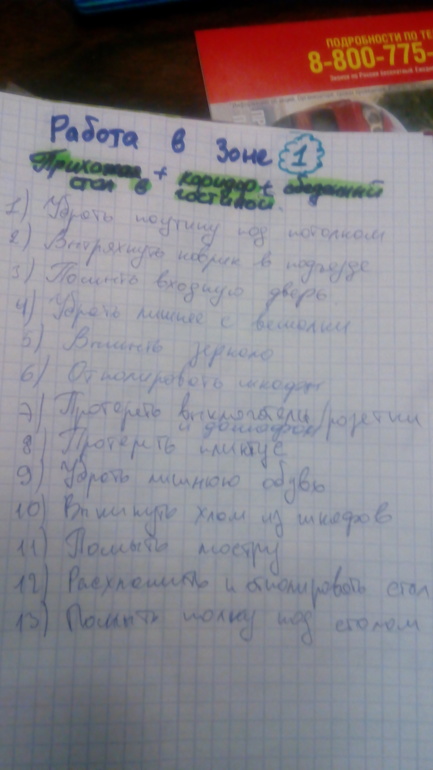 ПОДРОБНОСТИ ПО ТЕ
8-800-775-
Работа в Зоне 1
Прихожая + коридор + обеденный
стол в гостиной.
1) Убрать паутину под потолком
2) Вытряхнуть коврик в подъезде
3) Помыть входную дверь
4) Убрать лишнее с вешалки
5) Вымыть зеркало
6) Отполировать шкафы
7) Протереть выключатели/розетки
и домофон
8) Протереть плинтус
9) Убрать лишнюю обувь
10) Выкинуть хлам из шкафов
11) Помыть люстру
12) Расхламить и отполировать стол
13) Помыть полку под столом